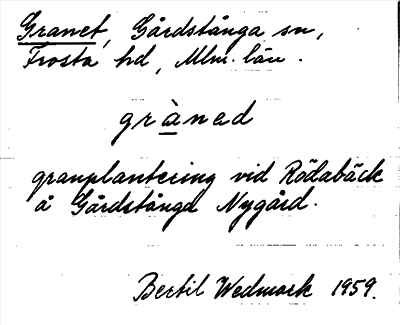 Granet, Gårdstånga sn,
Frosta hd, Mlm. län.
gràned
granplantering vid Rödabäck
å Gårdstånga Nygård.
Bertil Wedmark 1959.